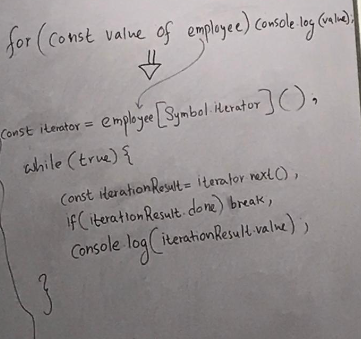 for (const value of employee) console.log(value);
const iterator = employee[Symbol.iterator]();
while (true) {
const iterationResult = iterator next();
if (iterationResult.done) break;
console.log(iterationResult.value);
}